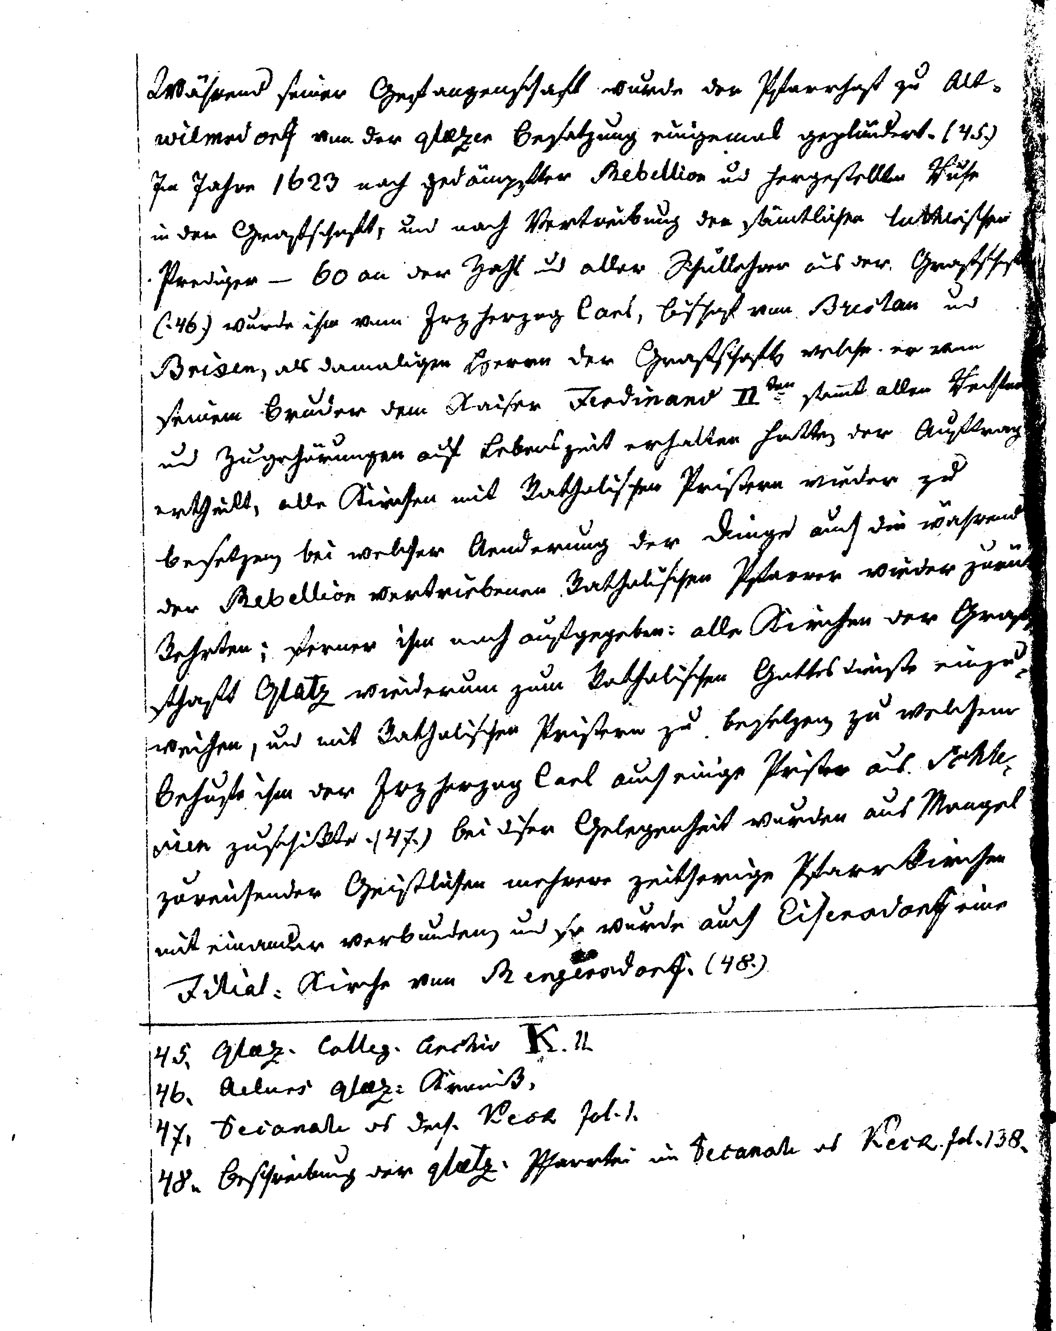 Während seiner Gefangenschaft wurde der Pfarrhof zu Alt-
wilmsdorf von der glatzer Besatzung einigemal geplündert. (45.)
Im Jahre 1623 nach gedämpfter Rebellion und hergestellter Ruhe
in der Grafschaft, und nach Vertreibung der sämtlichen lutherischen
Prediger — 60 an der Zahl und aller Schullehrer aus der Grafschaft
(:46.) wurde ihm vom Erzherzog Carl, Bischof von Breslau und
Brixen, als damaligen Herrn der Grafschaft, welche er von
seinem Bruder dem Kaiser Ferdinand II ten samt allen Rechten
und Zugehörungen auf Lebenszeit erhalten hatte, der Auftrag
ertheilt, alle Kirchen mit Katholischen Pristern wieder zu
besetzen, bei welcher Aenderung der Dinge auch die während
der Rebellion vertriebenen Katholischen Pfarrer wieder zurük
Kehrten; ferner ihm noch aufgegeben: alle Kirchen der Graf
schaft Glatz wiederum zum Katholischen Gottesdienste einzu-
weihen, und mit Katholischen Pristern zu besetzen, zu welchem
Behufe ihm der Erzherzog Carl auch einige Prister aus Schle-
sien zuschikte. (47.) Bei diser Gelegenheit wurden aus Mangel
zureichender Geistlichen mehrere zeitherige Pfarrkirchen
mit einander verbunden, und so wurde auch Eisersdorf eine
Filial: Kirche von Rengersdorf. (48.)
45. Glaz. Colleg. Archiv K. 11
46. Aelurs glaz: Kronik.
47. Decanats
48. Beschreibung der glatz. Pfarrtei im Decanats fol. 138.